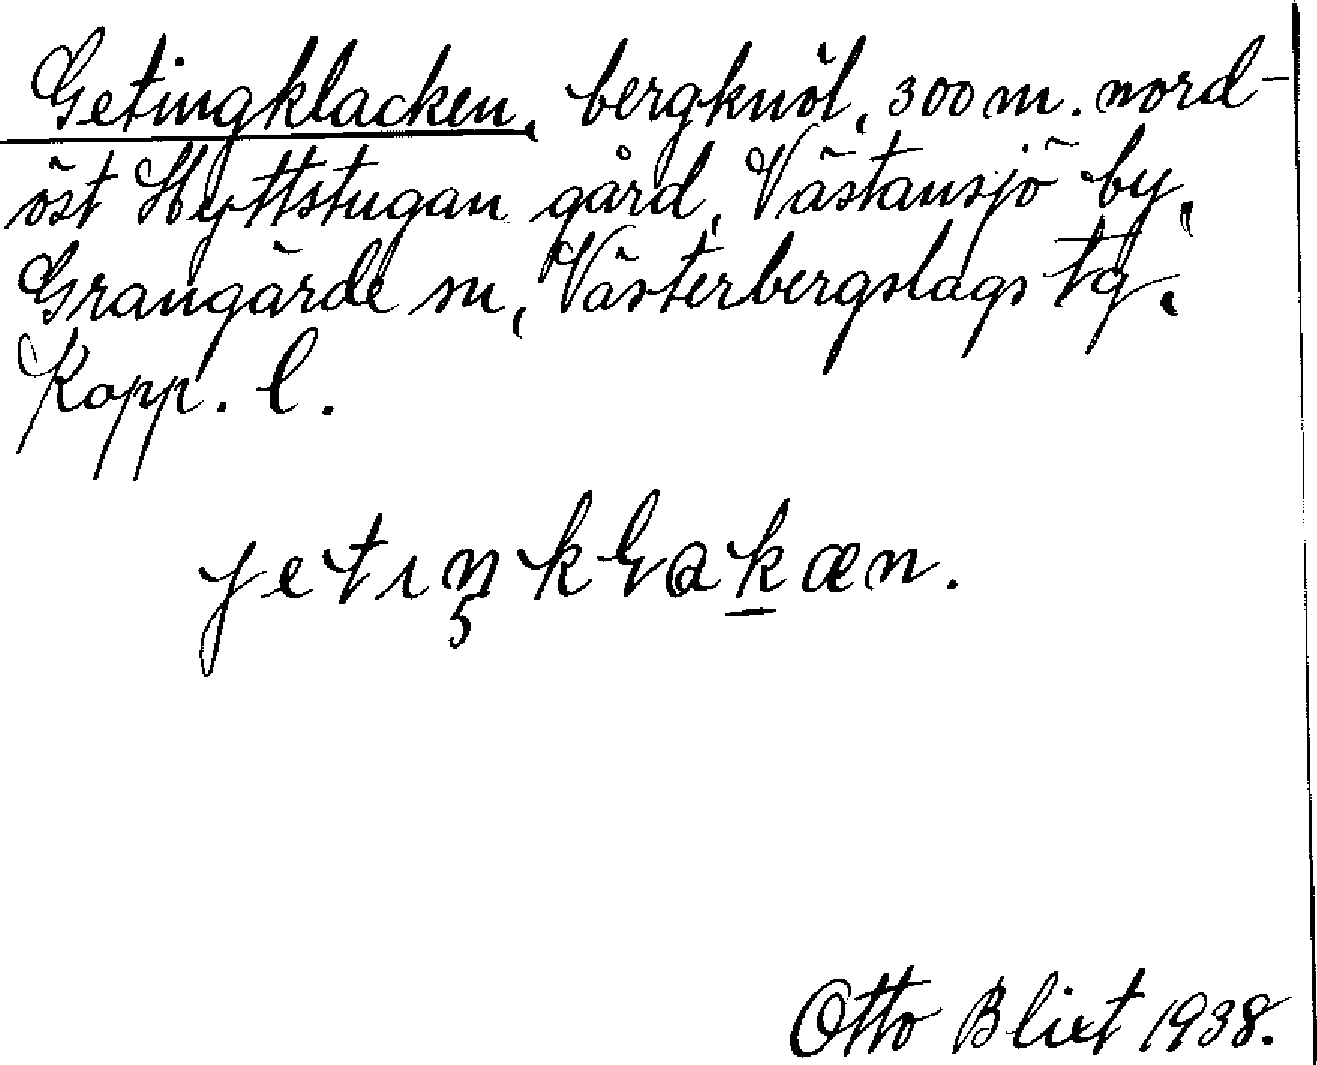 Getingklacken, bergknöl, 300 m. nord-
öst Hyttstugan gård, Västansjö by,
Grangärde sn, Västerbergslags tg,
Kopp. l.
jetıŋkɬakæn.
Otto Blixt 1938.